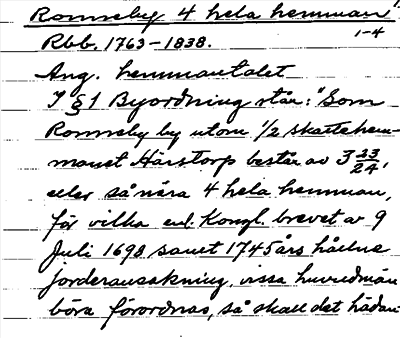 Romseby 4 hela hemman
1-4
Rbb. 1763-1838.
Ang. hemmantalet
I § 1 Byordning står: "Som
Romseby by utom 1/2 skattehem-
manet Hårstorp består av 3 23/24,
eller så nära 4 hela hemman,
för vilka enl. Kongl. brevet av 9
Juli 1698 samt 1745 års hållne
jorderansakning, vissa huvudmän
böra förordnas, så skall det hädan